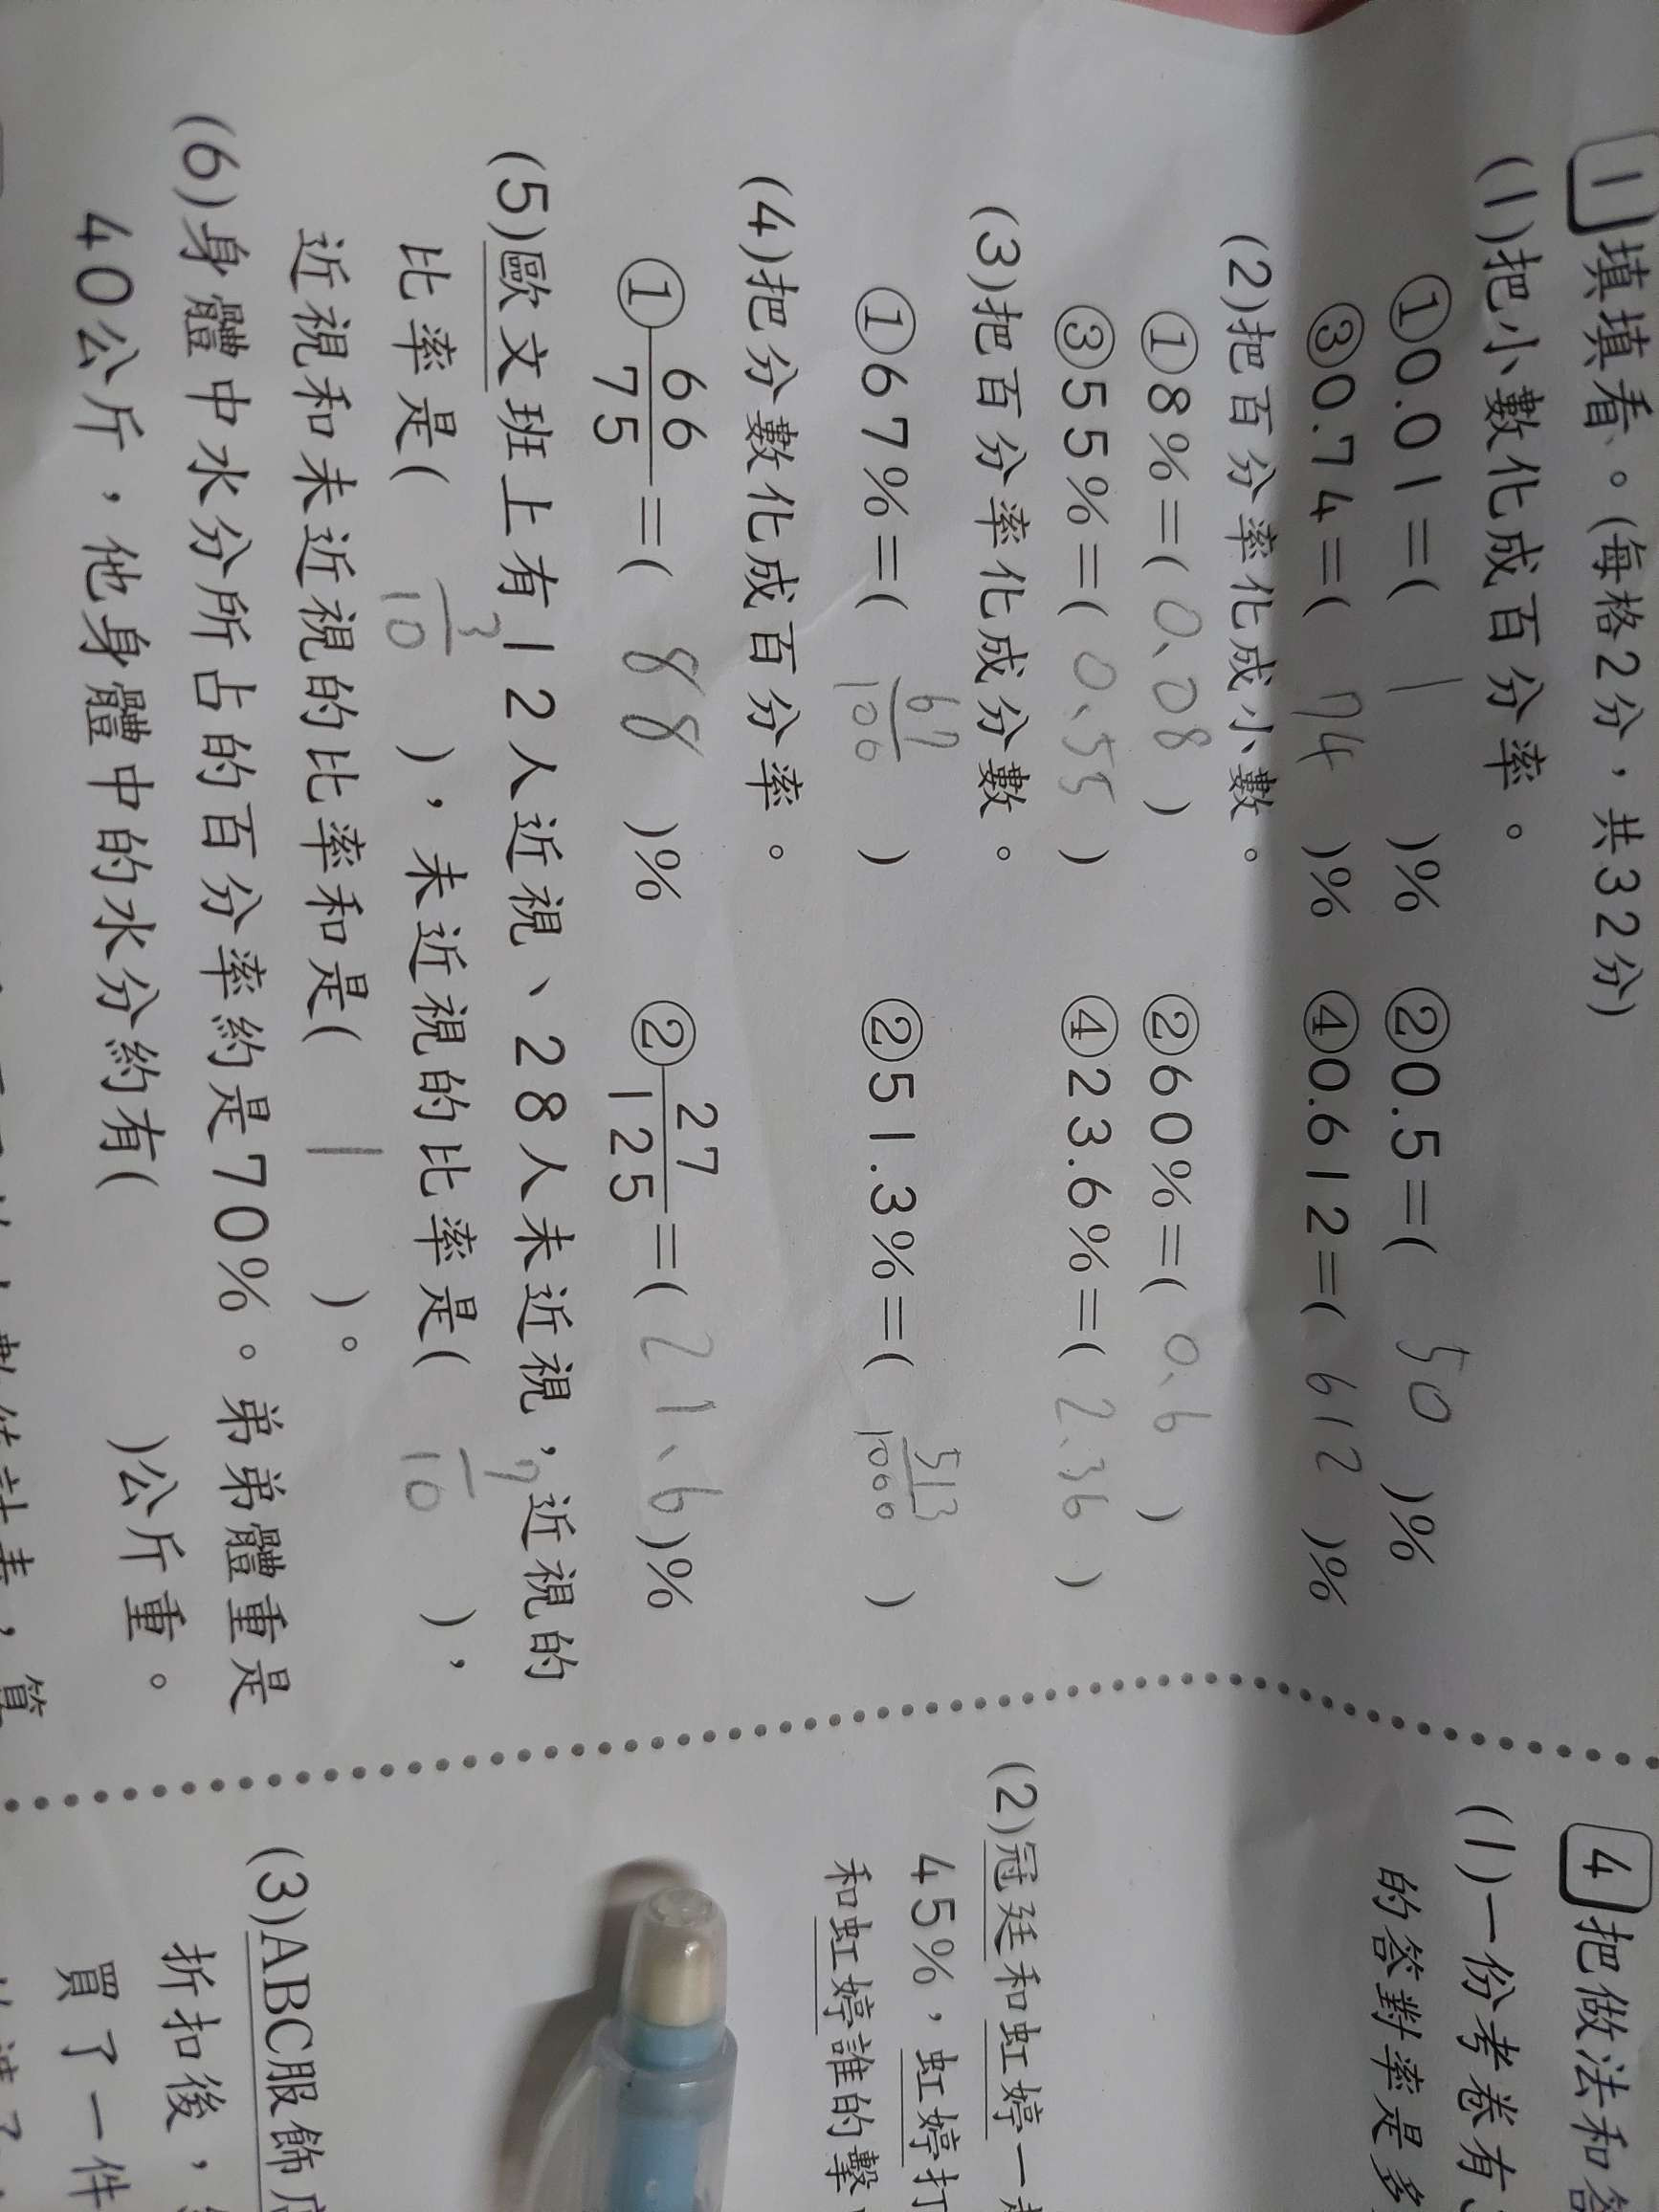 1 填填看。(每格2分，共32分)
(1)把小數化成百分率。
①0.01=( 1 )% ②0.5=( 50 )%
③0.74=( 74 )% ④0.612=( 612 )%
(2)把百分率化成小數。
①8%=( 0.08 ) ②60%=( 0.6 )
③55%=( 0.55 ) ④23.6%=( 2.36 )
(3)把百分率化成分數。
①67%=( 67/100 ) ②51.3%=( 513/1000 )
(4)把分數化成百分率。
①66/75=( 88 )% ②27/125=( 21.6 )%
(5)歐文班上有12人近視、28人未近視，近視的
比率是( 3/10 )，未近視的比率是( 7/10 )，
近視和未近視的比率和是( 1 )。
(6)身體中水分所占的百分率約是70%。弟弟體重是
40公斤，他身體中的水分約有( )公斤重。
，算
4 把做法和
(1)一份考卷有
的答對率是多
(2)冠廷和虹婷一
45%，虹婷打
和虹婷誰的擊
(3)ABC服飾
折扣後，
買了一件